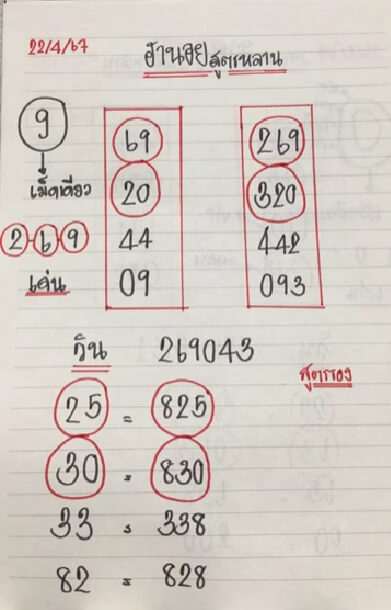 22/4/67
ฮานอย สูตรหลาน
9 69 269
เม็ดเดียว 20 320
2-6-9 44 442
เด่น 09 093
วิน 269043
สูตรรอง
25 = 825
30 = 830
33 = 338
82 = 828